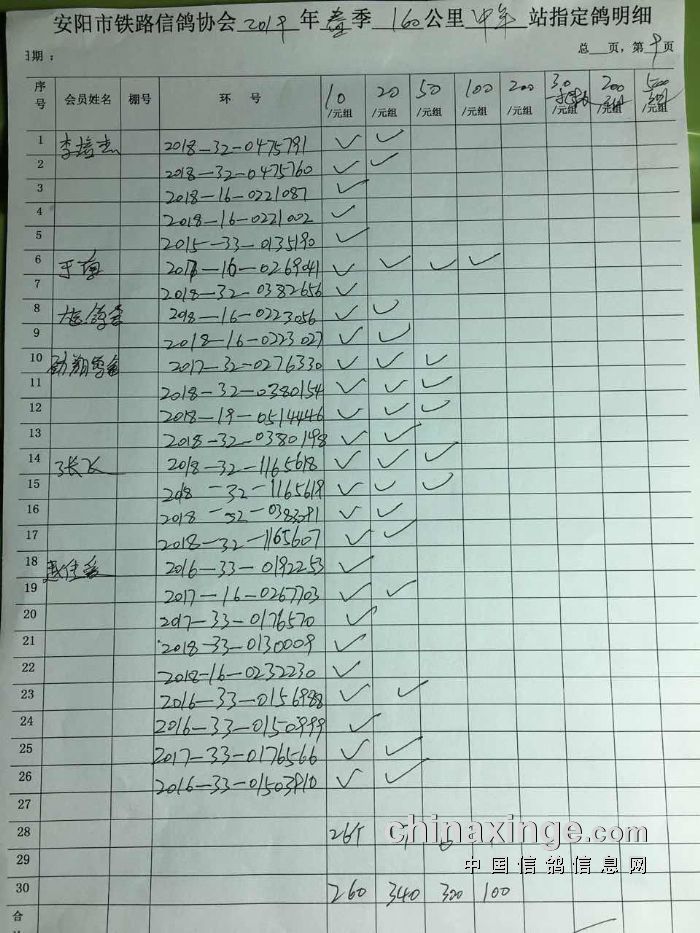 安阳市铁路信鸽协会 2019 年 春 季 160 公里 站指定鸽明细
日期： 总 页，第 9 页
序号 会员姓名 棚号 环 号 10/元组 20/元组 50/元组 100/元组 200/元组 30/元组 200/元组 500/元组
1 李培志 2018-32-0475791 ✓ ✓
2 2018-32-0475760 ✓ ✓
3 2018-16-0221087 ✓
4 2018-16-0221002 ✓
5 2015-33-0135190 ✓
6 2017-16-0269041 ✓ ✓ ✓ ✓
7 2018-32-0382656 ✓
8 2018-16-0223056 ✓ ✓
9 2018-16-0223027 ✓ ✓
10 2017-32-0276330 ✓ ✓ ✓
11 2018-32-0380154 ✓ ✓ ✓
12 2018-19-0514446 ✓ ✓ ✓
13 2018-32-0380198 ✓ ✓
14 张飞 2018-32-1165618 ✓ ✓ ✓
15 2018-32-1165619 ✓ ✓ ✓
16 2018-32- ✓ ✓
17 2018-32-1165607 ✓ ✓
18 2016-33-0192253 ✓
19 2017-16-0267703 ✓ ✓
20 2017-33-0176570 ✓
21 2018-33-0130009 ✓
22 2018-16-0232230 ✓
23 2016-33-0156988 ✓ ✓
24 2016-33-0150999 ✓
25 2017-33-0176566 ✓ ✓
26 2016-33-01503910 ✓ ✓
27
28 26
29
30 260 340 300 100
合
chinaxinge.com
中国信鸽信息网